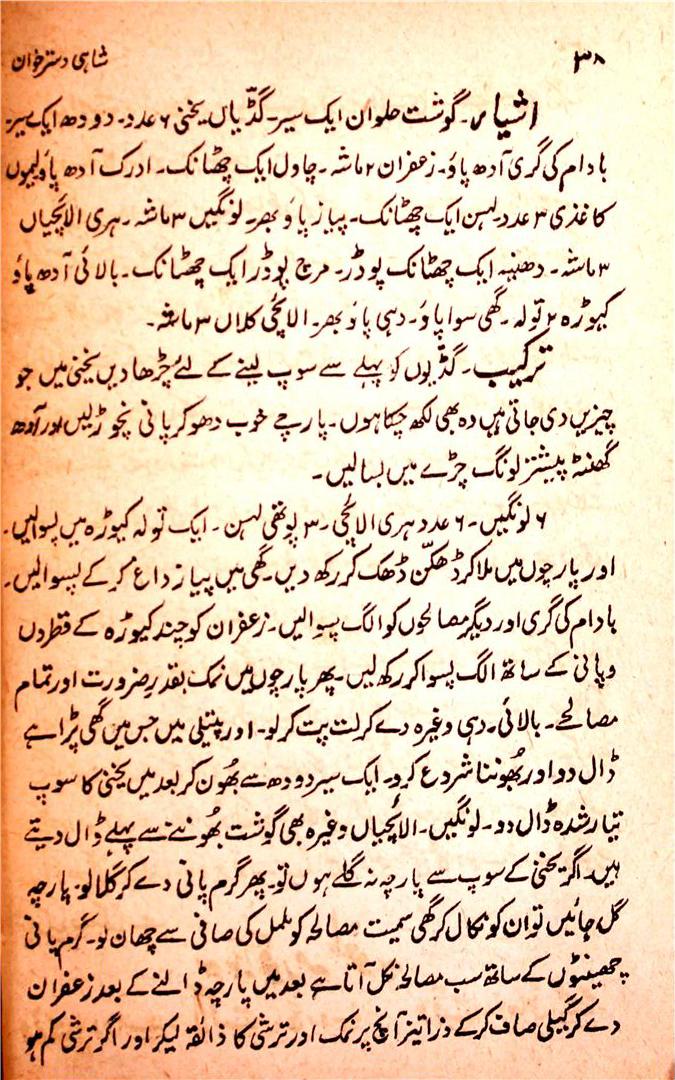 ۳۸
شاہی دسترخوان
اشیاء۔ گوشت حلوان ایک سیر۔ گڈّیاں یخنی ۶ عدد۔ دودھ ایک سیر۔
بادام کی گری آدھ پاؤ۔ زعفران ۲ ماشہ۔ چاول ایک چھٹانک۔ ادرک آدھ پاؤ لیموں
کاغذی ۳ عدد۔ لہسن ایک چھٹانک۔ پیاز پاؤ بھر۔ لونگیں ۳ ماشہ۔ ہری الائچیاں
۳ ماشہ۔ دھنیہ ایک چھٹانک پوڈر۔ مرچ پوڈر ایک چھٹانک۔ بالائی آدھ پاؤ
کیوڑہ ۲ تولہ۔ گھی سوا پاؤ۔ دہی پاؤ بھر۔ الائچی کلاں ۳ ماشہ۔
ترکیب۔ گڈیوں کو پہلے سے سوپ لینے کے لئے چڑھا دیں یخنی میں جو
چیزیں دی جاتی ہیں وہ بھی لکھ چکا ہوں۔ پارچے خوب دھو کر پانی نچوڑ لیں اور آدھ
گھنٹہ پیشتر لونگ چڑے میں بسا لیں۔
۶ لونگیں۔ ۶ عدد ہری الائچی۔ ۳ پوتھی لہسن۔ ایک تولہ کیوڑہ میں پسوالیں۔
اور پارچوں میں ملا کر ڈھکّن ڈھک کر رکھ دیں۔ گھی میں پیاز داغ کر کے پسوالیں۔
بادام کی گری اور دیگر مصالحوں کو الگ پسوالیں۔ زعفران کو چند کیوڑہ کے قطروں
و پانی کے ساتھ الگ پسوا کر رکھ لیں۔ پھر پارچوں میں نمک بقدرِ ضرورت اور تمام
مصالحے۔ بالائی۔ دہی وغیرہ دے کر لت پت کر لو۔ اور پتیلی میں جس میں گھی پڑا ہے
ڈال دو اور بُھوننا شروع کردو۔ ایک سیر دودھ سے بُھون کر بعد میں یخنی کا سوپ
تیار شدہ ڈال دو۔ لونگیں۔ الائچیاں وغیرہ بھی گوشت بُھوننے سے پہلے ڈال دیتے
ہیں۔ اگر یخنی کے سوپ سے پارچہ نہ گلے ہوں تو۔ پھر گرم پانی دے کر گلا لو۔ پارچہ
گل جائیں تو ان کو نکال کر گھی سمیت مصالحہ کو ململ کی صافی سے چھان لو۔ گرم پانی
چھینٹوں کے ساتھ سب مصالحہ نکل آتا ہے بعد میں پارچہ ڈالنے کے بعد زعفران
دے کر گیلی صاف کر کے ذرا تیز آنچ پر نمک اور ترشی کا ذائقہ لیکر اور اگر ترشی کم ہو